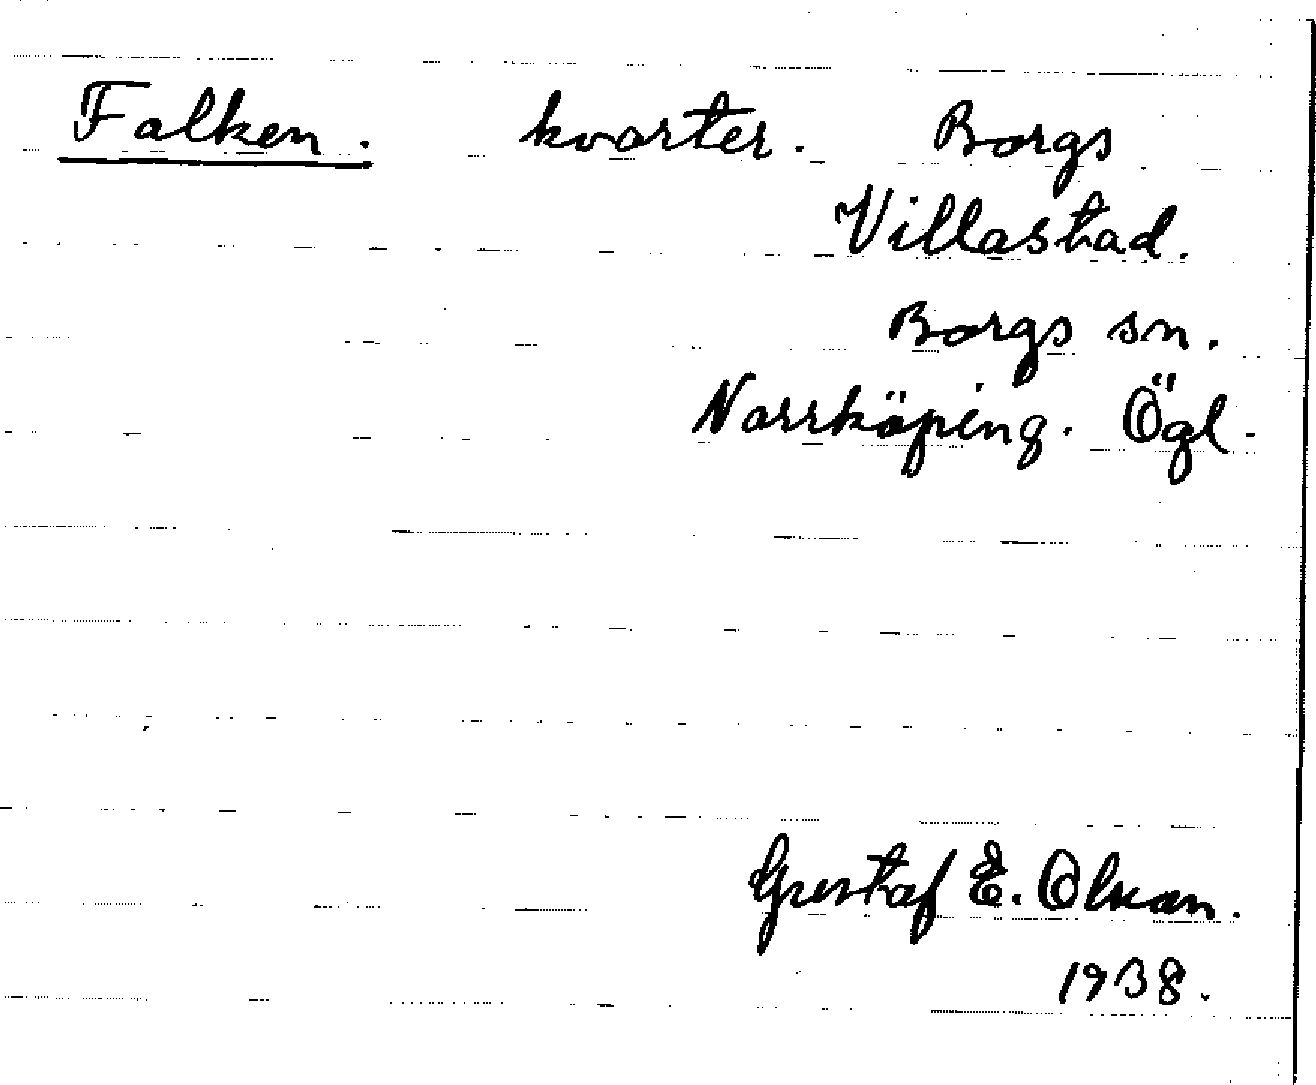 Falken. kvarter. Borgs
Villastad.
Borgs sn.
Norrköping. Ögl.
Gustaf E. Olson.
1938.